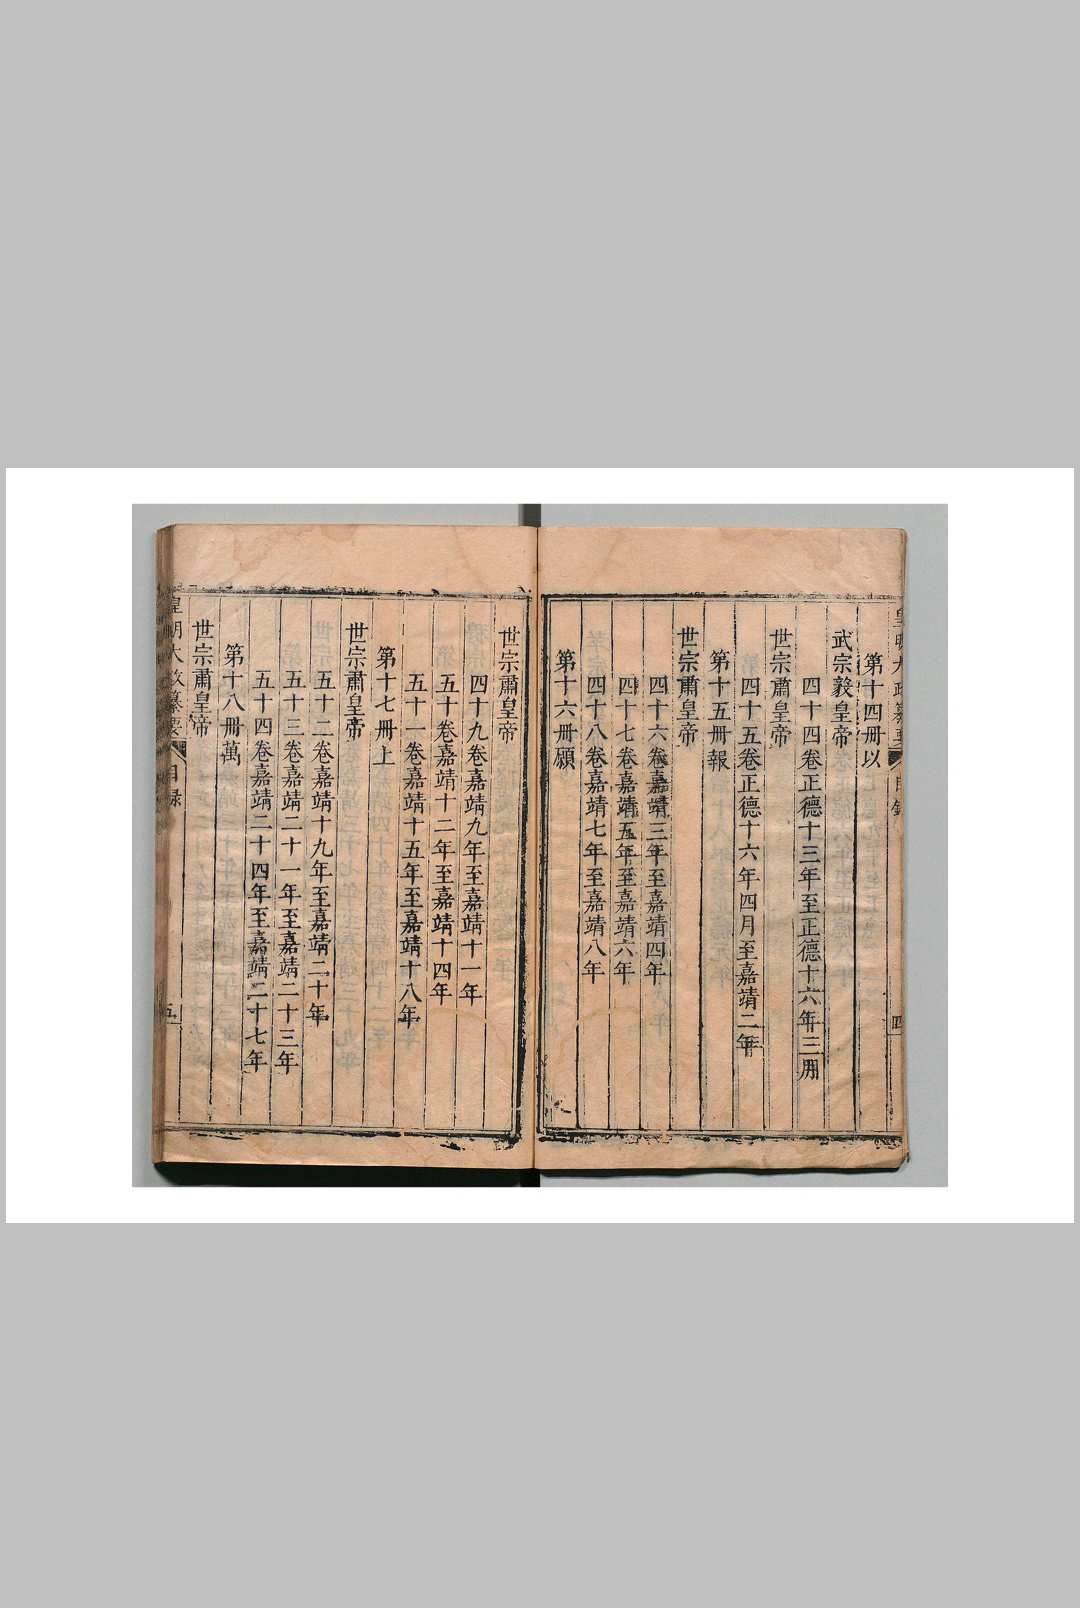 第十四冊以
武宗毅皇帝
四十四卷正德十三年至正德十六年三月
世宗肅皇帝
四十五卷正德十六年四月至嘉靖二年
第十五冊報
世宗肅皇帝
四十六卷嘉靖三年至嘉靖四年
四十七卷嘉靖五年至嘉靖六年
四十八卷嘉靖七年至嘉靖八年
第十六冊願
世宗肅皇帝
四十九卷嘉靖九年至嘉靖十一年
五十卷嘉靖十二年至嘉靖十四年
五十一卷嘉靖十五年至嘉靖十八年
第十七冊上
世宗肅皇帝
五十二卷嘉靖十九年至嘉靖二十年
五十三卷嘉靖二十一年至嘉靖二十三年
五十四卷嘉靖二十四年至嘉靖二十七年
第十八冊萬
世宗肅皇帝
皇明大政纂要 目録 五